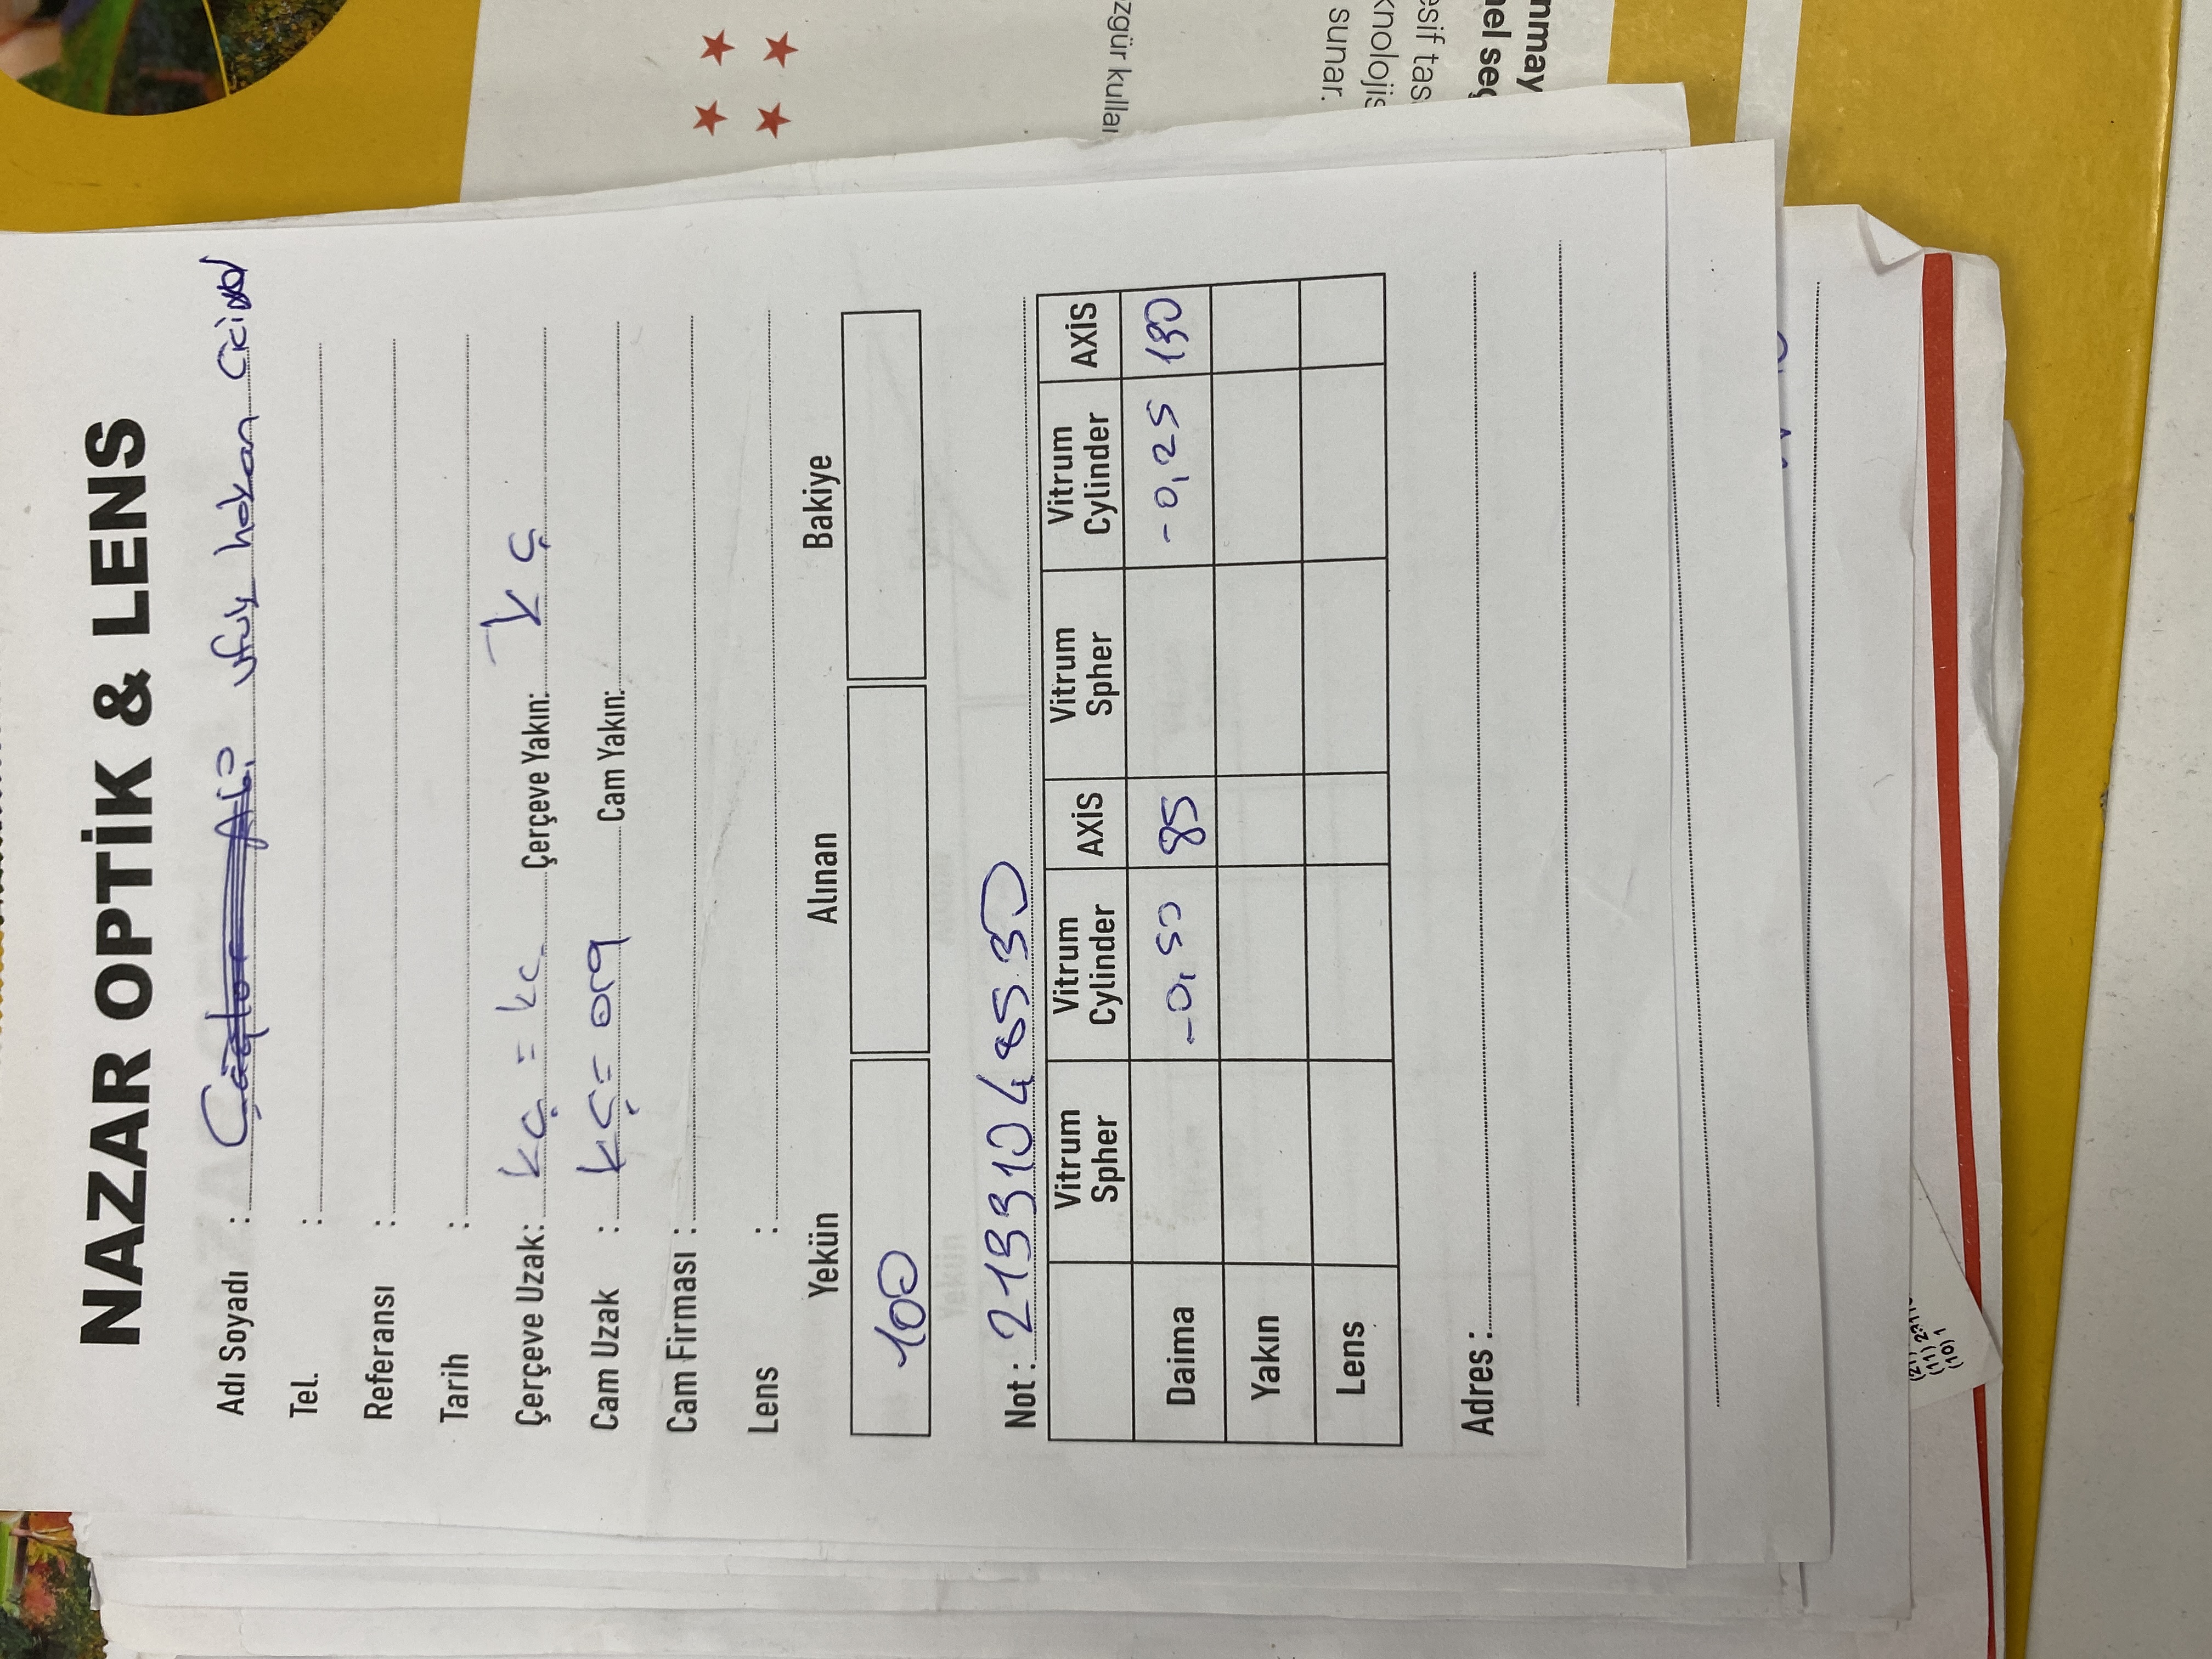 NAZAR OPTİK & LENS
Adı Soyadı : Çağlar Abi ufuk hakan
Tel. :
Referansı :
Tarih :
Çerçeve Uzak: kç = kç Çerçeve Yakın: kç
Cam Uzak : kç= org Cam Yakın:
Cam Firması :
Lens :
Yekün Alınan Bakiye
100
Not : 21931048530
Vitrum Spher Vitrum Cylinder AXİS Vitrum Spher Vitrum Cylinder AXİS
Daima -0,50 85 -0,25 130
Yakın
Lens
Adres :
zgür kullar
sunar.
knolojis
esif tas
nel seç
nmay
(21)
(11) 2311
(10) 1